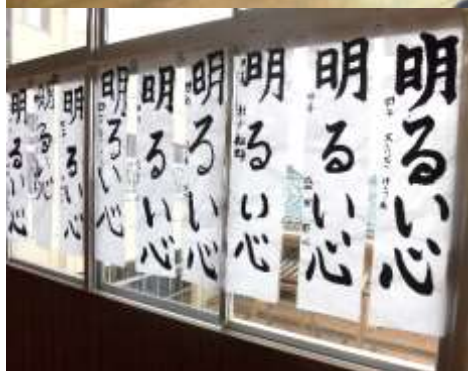 明るい心
明るい心
明るい心
明るい心
明るい心
明るい心
明るい心
明るい心
明るい心